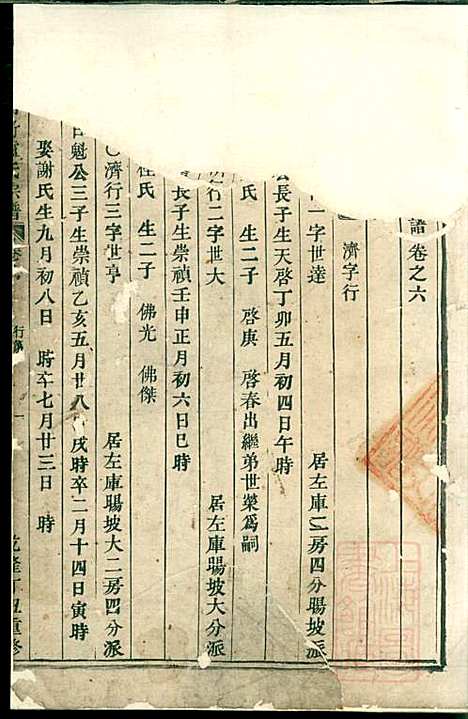 譜卷之六
濟字行
一字世達 居左庫二房四分賜坡派
長子生天啓丁卯五月初四日午時
氏 生二子 啓庚 啓春出繼弟世榮爲嗣
行二字世大 居左庫賜坡大分派
長子生崇禎壬申正月初六日巳時
杜氏 生二子 佛光 佛傑
○濟行三字世亨 居左庫賜坡大二房四分派
魁公三子生崇禎乙亥五月廿八 戌時卒二月十四日寅時
娶謝氏生九月初八日 時卒七月廿三日 時
氏宗譜 行 一 乾隆丁丑重修